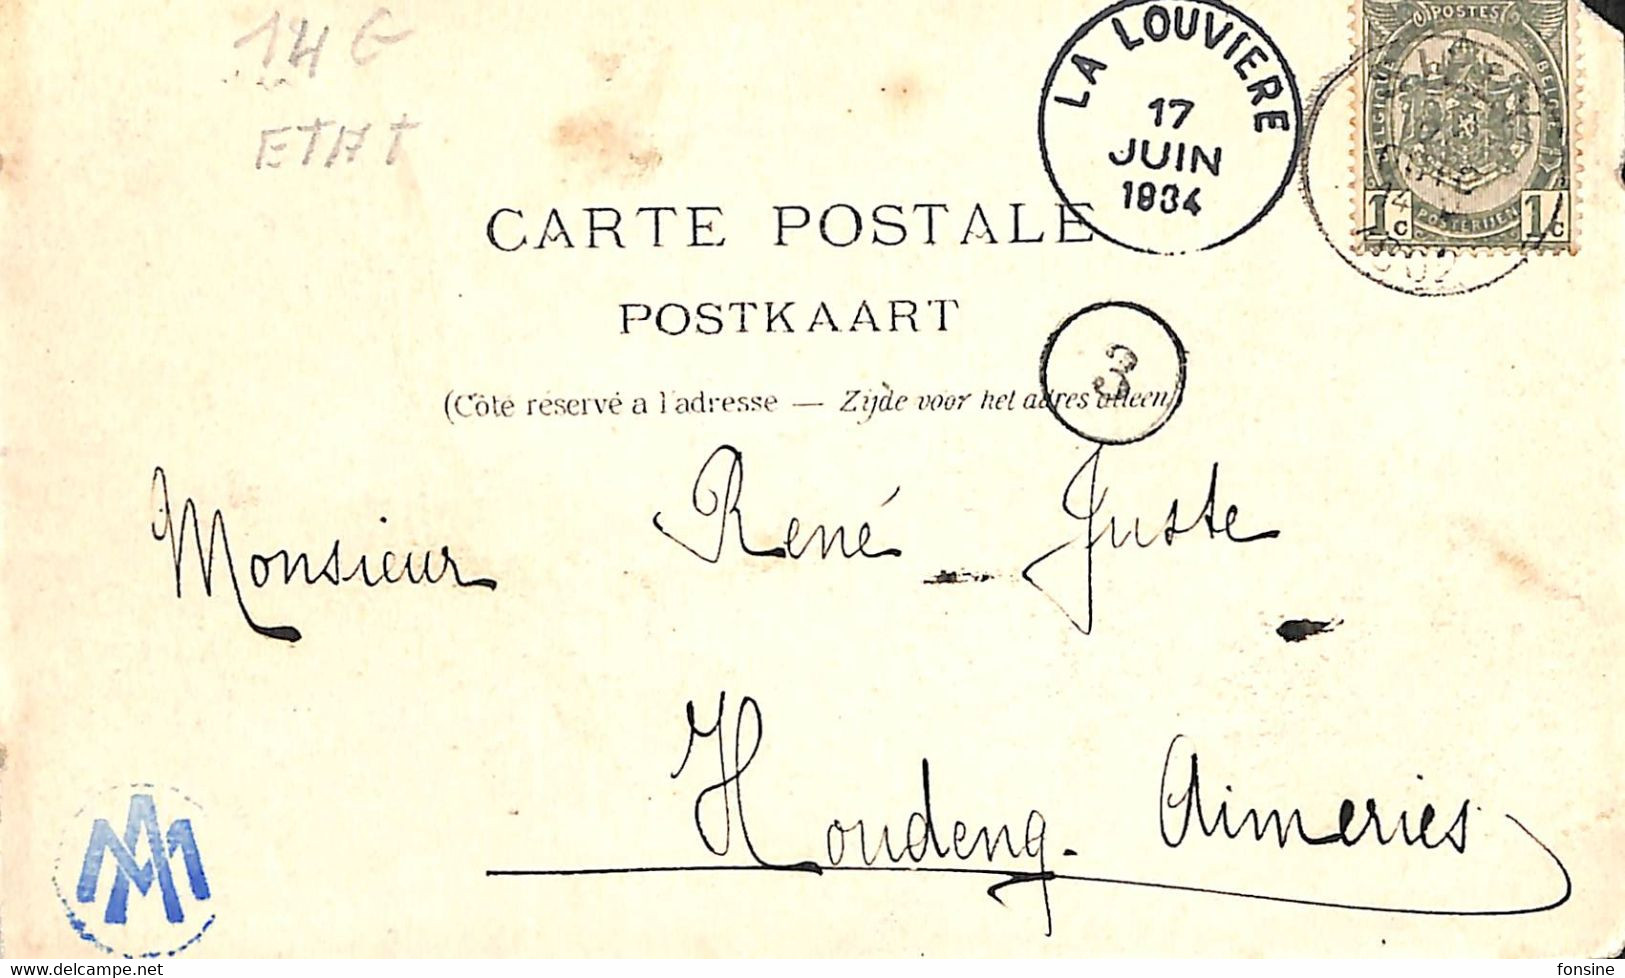 14 G
ETAT
LA LOUVIERE
17
JUIN
1934
POSTES
BELGIQUE
BELGIË
POSTERIJEN
1c 1c
CARTE POSTALE
POSTKAART
3
(Côté réservé a l'adresse — Zijde voor het adres alleen)
Monsieur René Juste
Houdeng-Aimeries
AM
www.delcampe.net
fonsine